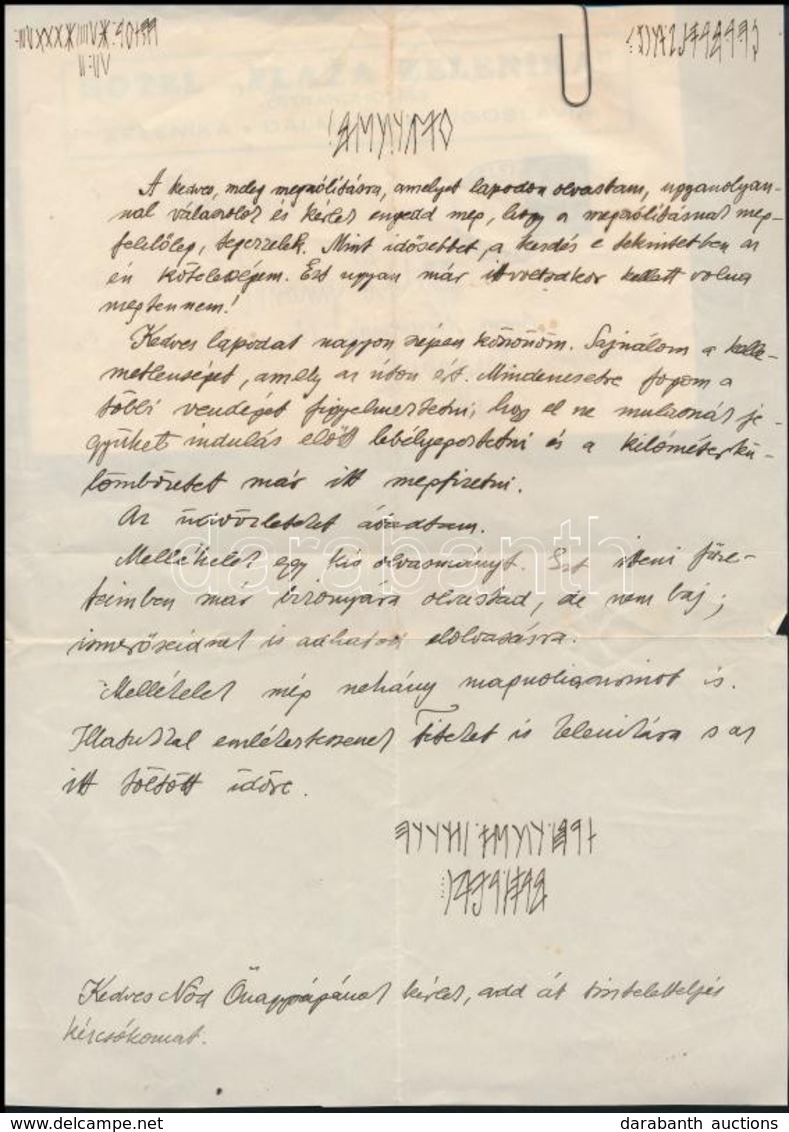 A kedves, meleg megszólításra, amelyet lapodon olvastam, ugyanolyan-
nal válaszolok és kérlek engedd meg, hogy a megszólításnak meg-
felelőleg, tegezzelek. Mint idősebbet, a kezdés e tekintetben az
én kötelességem. Ezt ugyan már ittvoltodkor kellett volna
megtennem!
Kedves lapodat nagyon szépen köszönöm. Sajnálom a kelle-
metlenséget, amely az úton ért. Mindenesetre fogom a
többi vendéget figyelmeztetni, hogy el ne mulasszák je-
gyüket indulás előtt lebélyegeztetni és a kilométerkü-
lömbözetet már itt megfizetni.
Az üdvözleteket átadtam.
Mellékelek egy kis olvasmányt. Ezt itteni füze-
teimben már bizonyára olvastad, de nem baj;
ismerőseidnek is adhatod elolvasásra.
Mellékelek még néhány magnoliaszirmot is.
Illatukkal emlékeztessenek Titeket is Zelenikára s az
itt töltött időre.
Kedves Nőd Önagypapának kérlek, add át tiszteletteljes
kézcsókomat.
darabanth
HOTEL PLAZA ZELENIKA
darabanth auctions